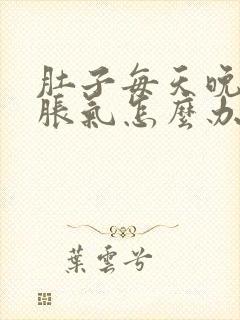 肚子每天晚
脹氣怎麼办
葉雲兮